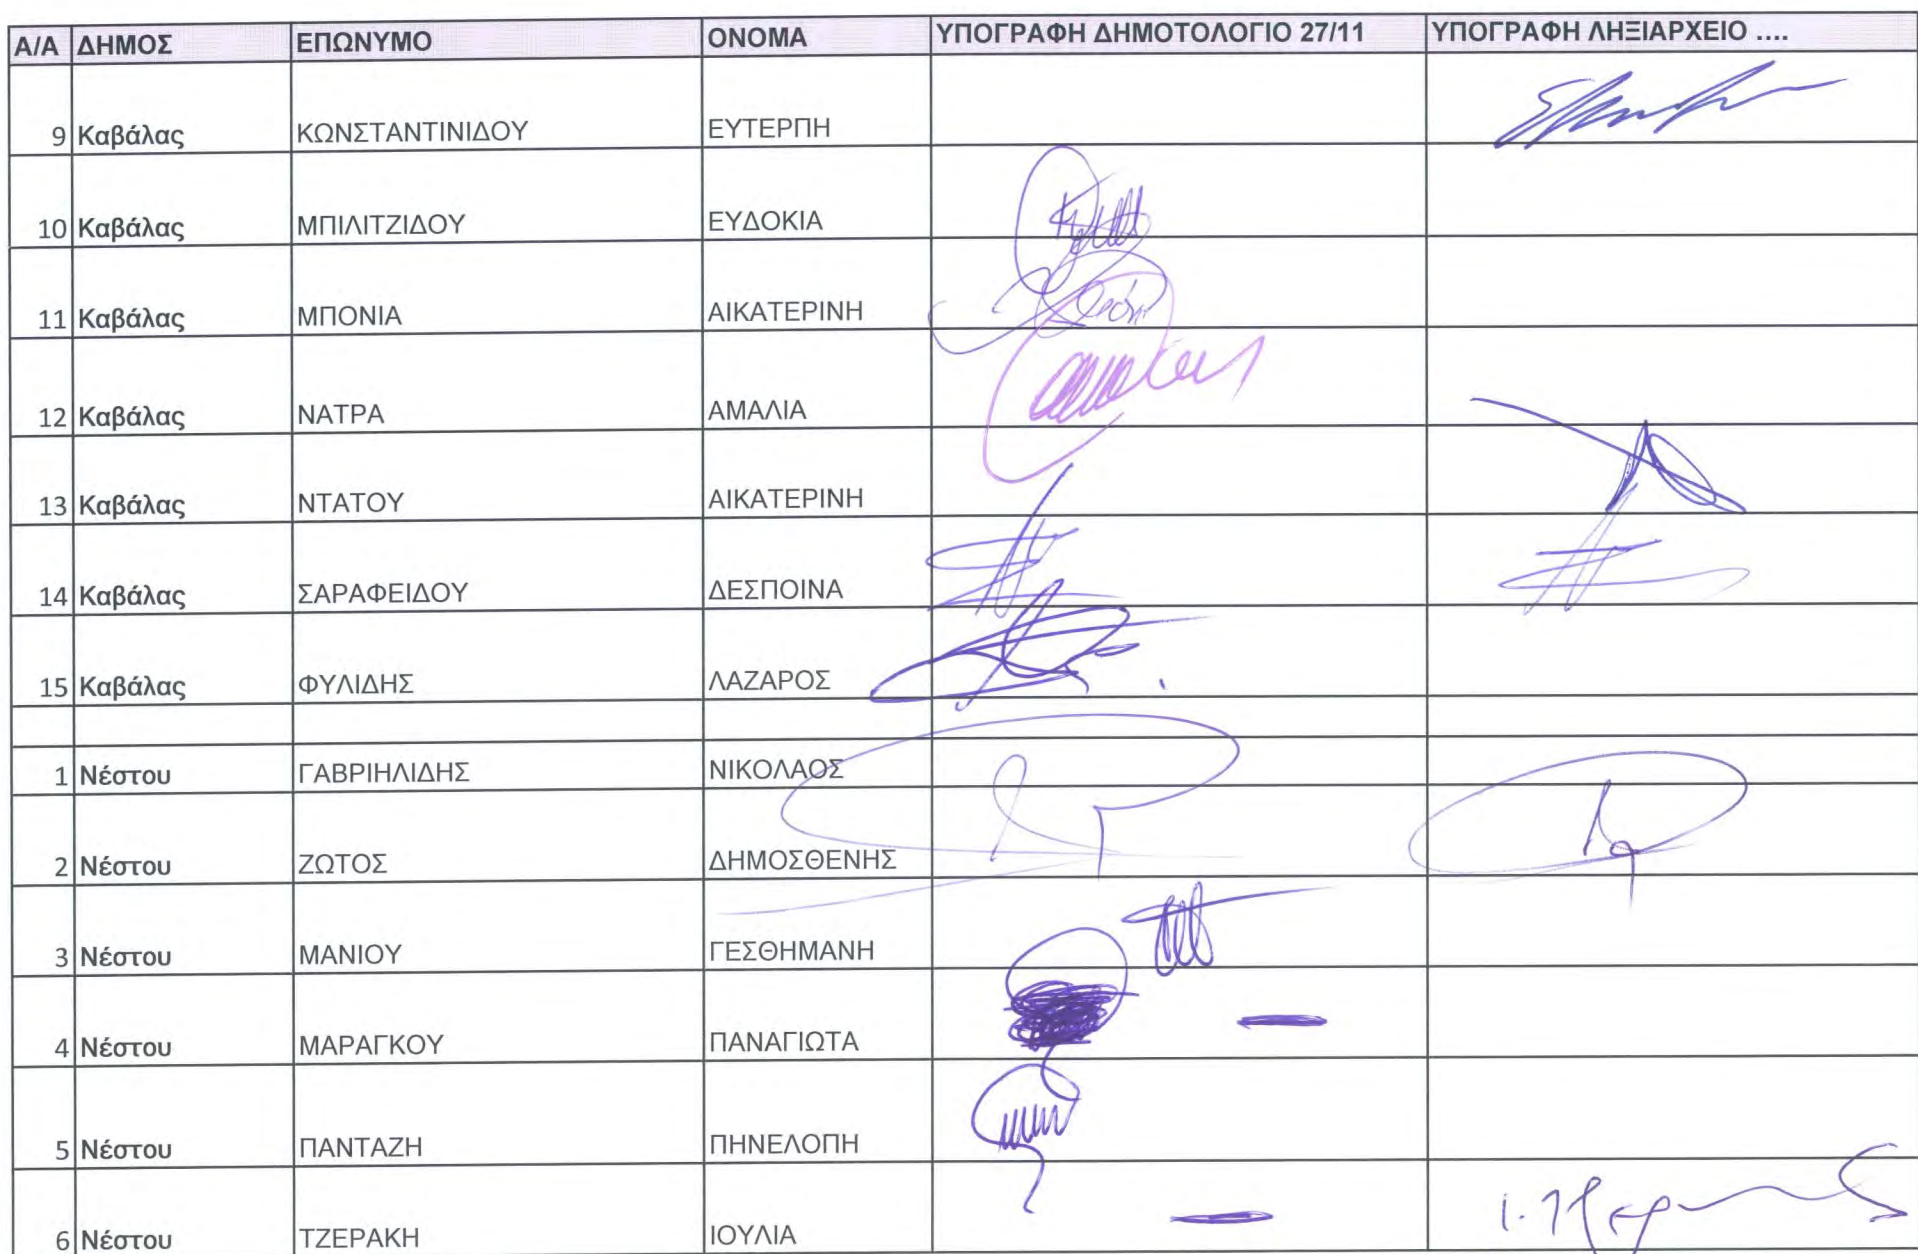 Α/Α ΔΗΜΟΣ ΕΠΩΝΥΜΟ ΟΝΟΜΑ ΥΠΟΓΡΑΦΗ ΔΗΜΟΤΟΛΟΓΙΟ 27/11 ΥΠΟΓΡΑΦΗ ΛΗΞΙΑΡΧΕΙΟ ....
9 Καβάλας ΚΩΝΣΤΑΝΤΙΝΙΔΟΥ ΕΥΤΕΡΠΗ
10 Καβάλας ΜΠΙΛΙΤΖΙΔΟΥ ΕΥΔΟΚΙΑ
11 Καβάλας ΜΠΟΝΙΑ ΑΙΚΑΤΕΡΙΝΗ
12 Καβάλας ΝΑΤΡΑ ΑΜΑΛΙΑ
13 Καβάλας ΝΤΑΤΟΥ ΑΙΚΑΤΕΡΙΝΗ
14 Καβάλας ΣΑΡΑΦΕΙΔΟΥ ΔΕΣΠΟΙΝΑ
15 Καβάλας ΦΥΛΙΔΗΣ ΛΑΖΑΡΟΣ
1 Νέστου ΓΑΒΡΙΗΛΙΔΗΣ ΝΙΚΟΛΑΟΣ
2 Νέστου ΖΩΤΟΣ ΔΗΜΟΣΘΕΝΗΣ
3 Νέστου ΜΑΝΙΟΥ ΓΕΣΘΗΜΑΝΗ
4 Νέστου ΜΑΡΑΓΚΟΥ ΠΑΝΑΓΙΩΤΑ
5 Νέστου ΠΑΝΤΑΖΗ ΠΗΝΕΛΟΠΗ
6 Νέστου ΤΖΕΡΑΚΗ ΙΟΥΛΙΑ